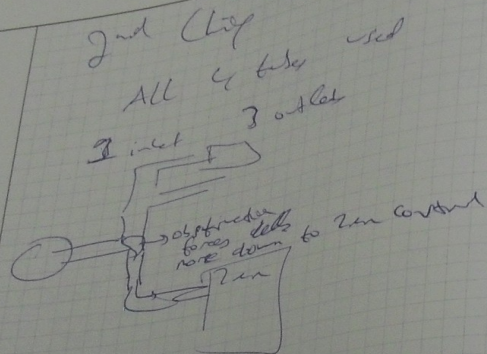 2nd Chip
All 4 tubes used
1 inlet 3 outlets
obstruction
forces cells
more down to 2nm control
2nm